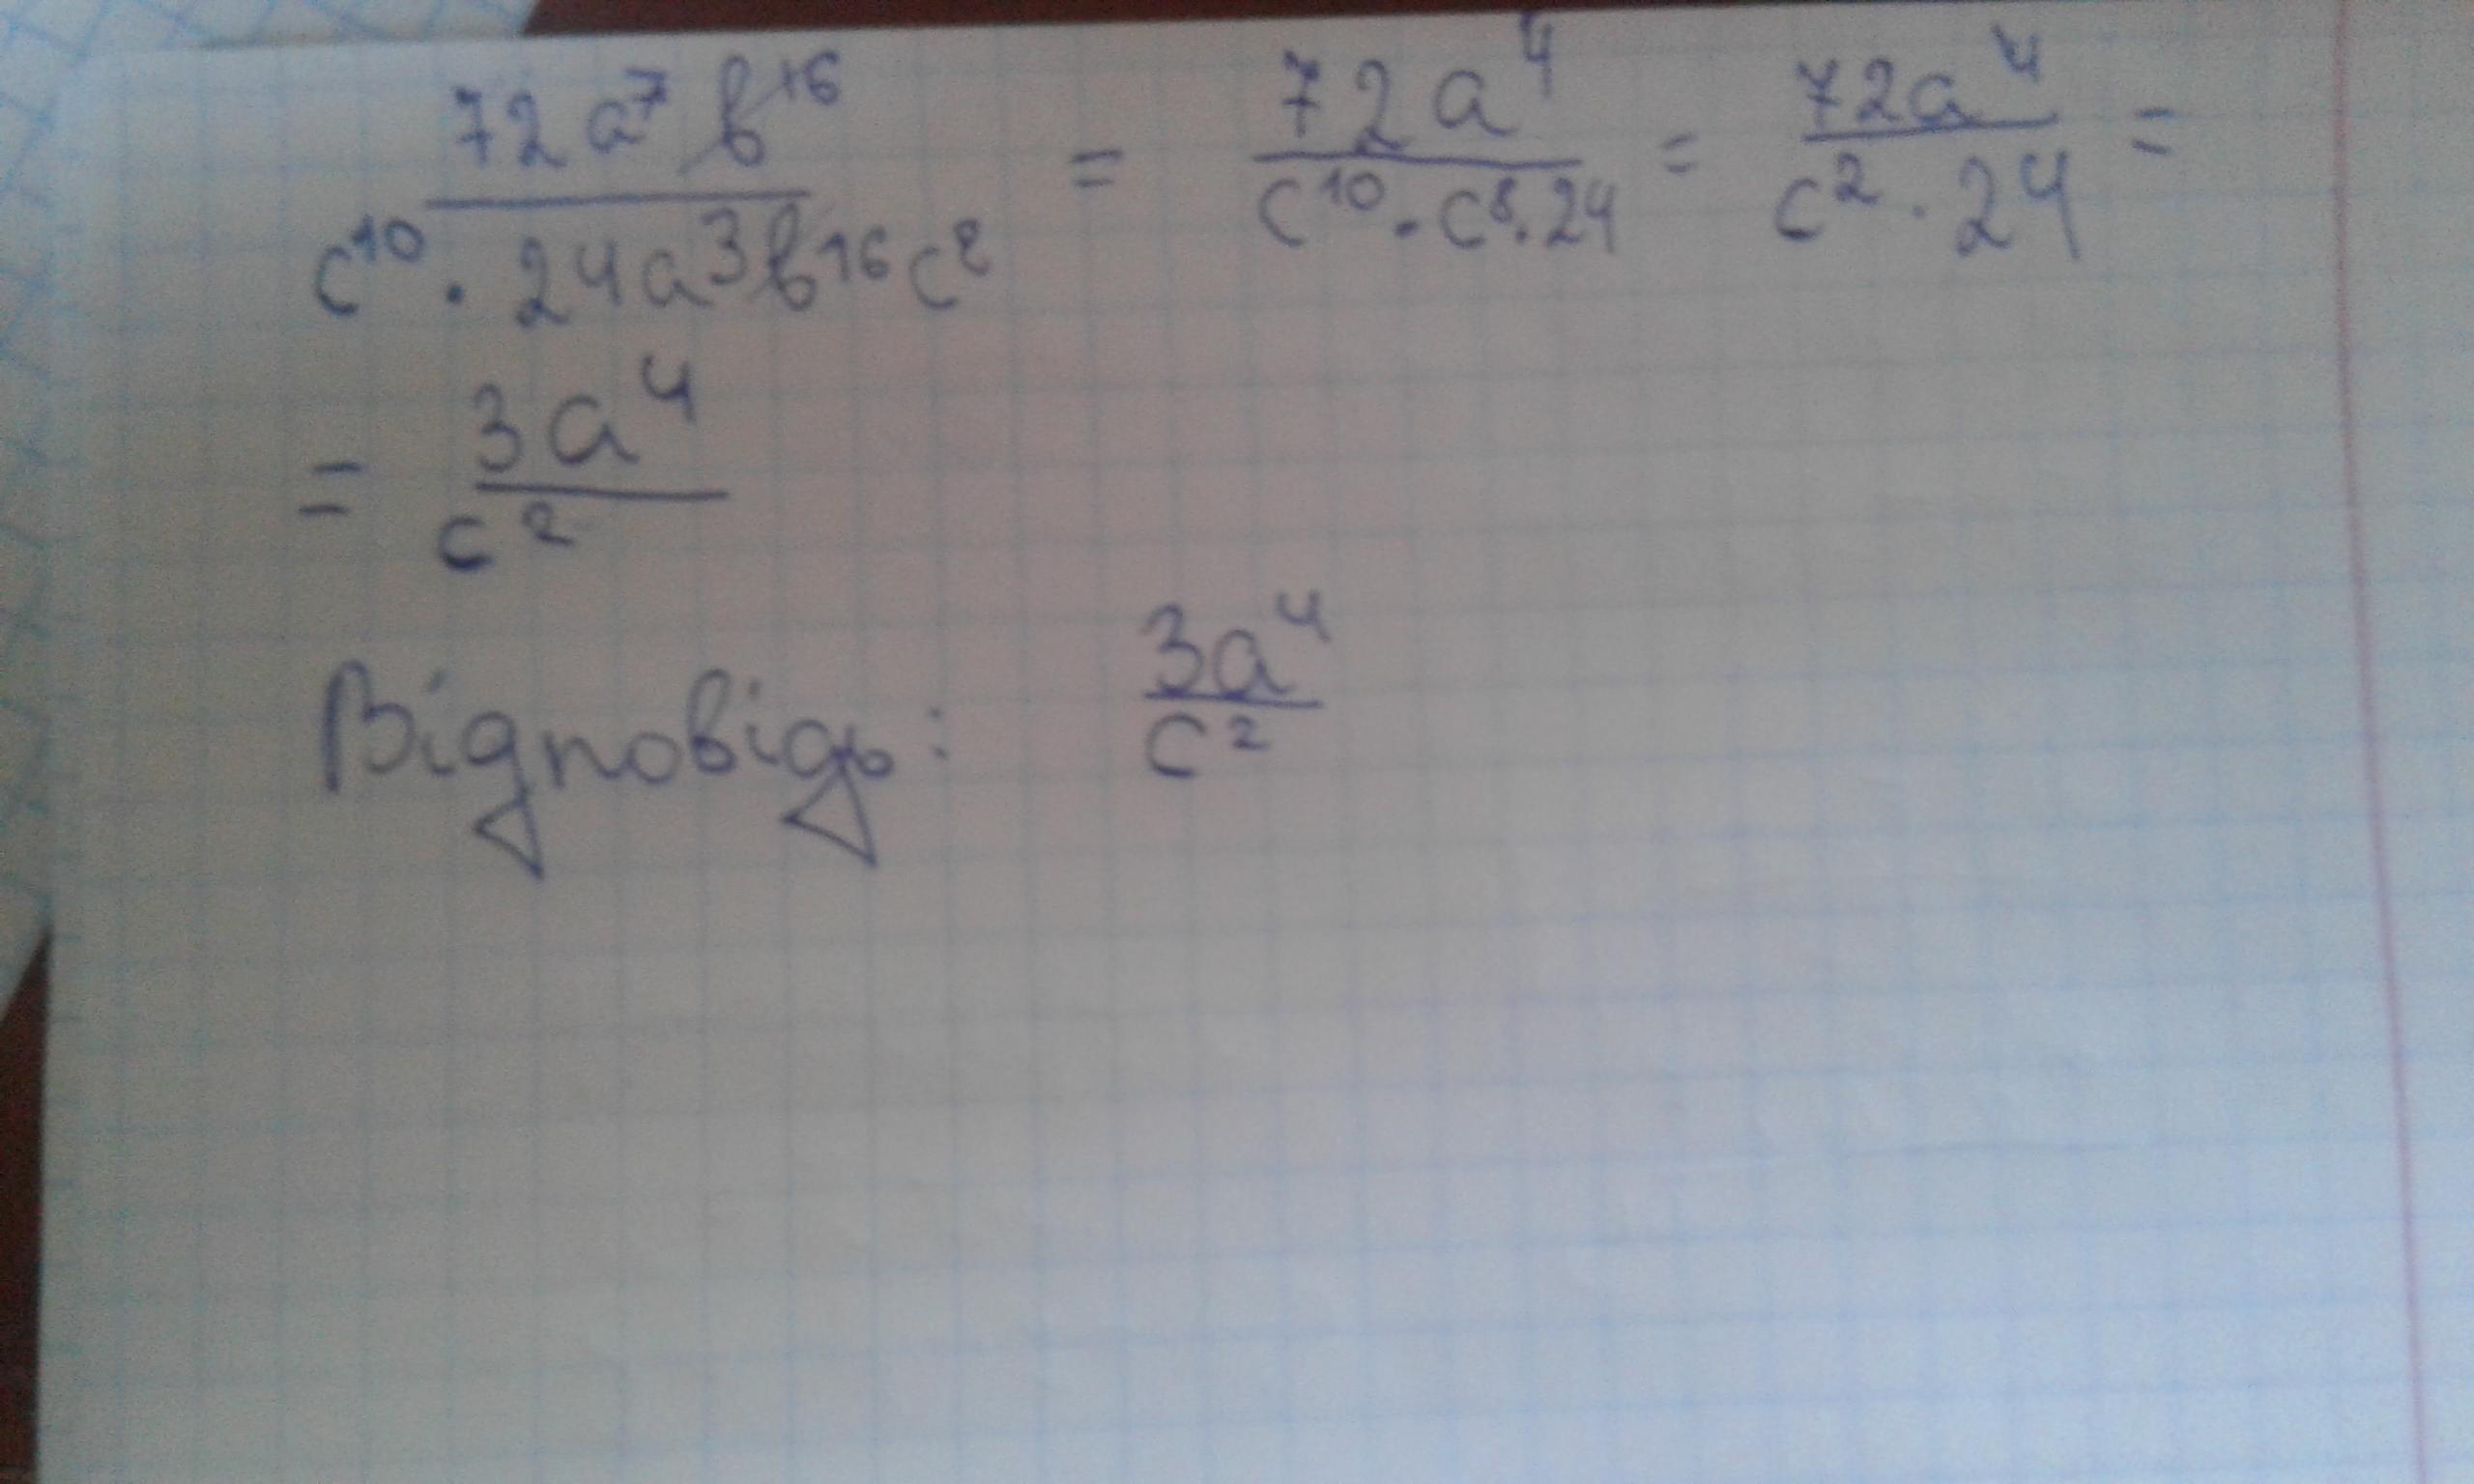 72a⁷b¹⁶ / c¹⁰ · 24a³b¹⁶c⁸ = 72a⁴ / c¹⁰ · c⁸ · 24 = 72a⁴ / c² · 24 =
= 3a⁴ / c²
Відповідь: 3a⁴ / c²